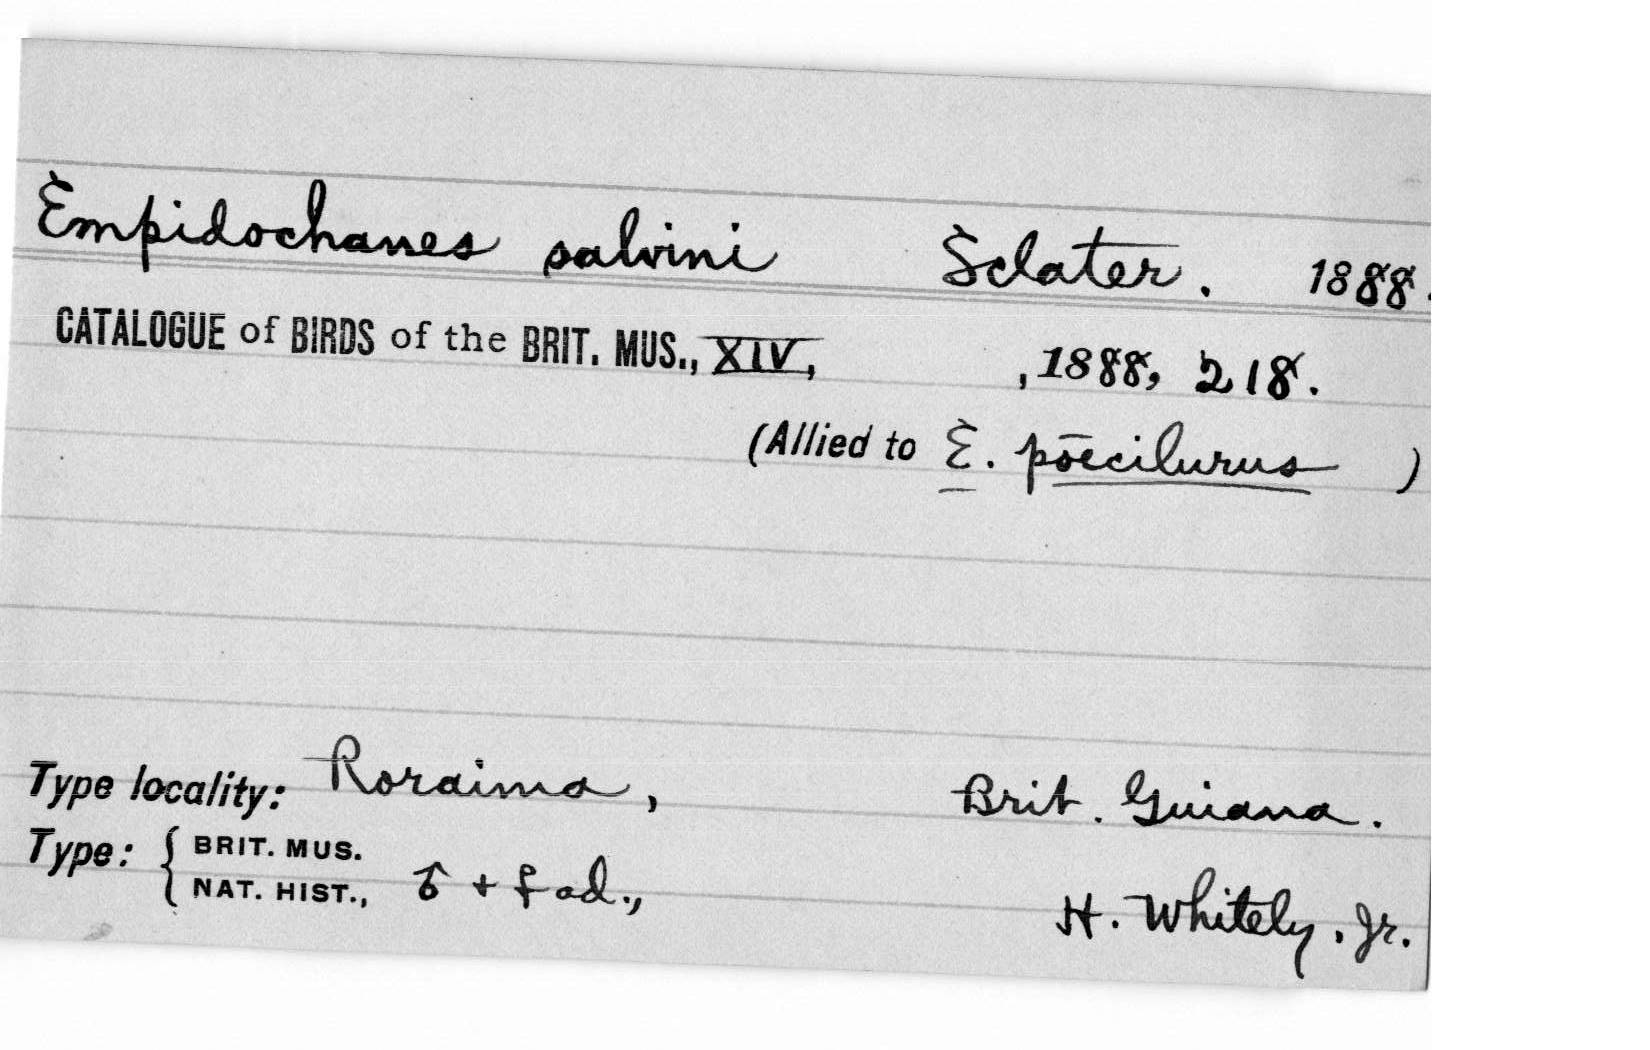 Empidochanes salvini Sclater. 1888.
CATALOGUE of BIRDS of the BRIT. MUS., XIV, , 1888, 218.
(Allied to E. pœcilurus )
Type locality: Roraima, Brit. Guiana.
Type: { BRIT. MUS. NAT. HIST., ♂ + ♀ ad., H. Whitely, Jr.